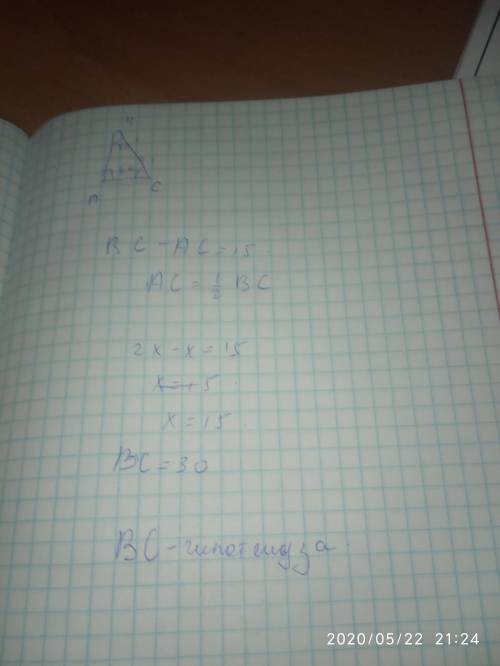 C
BC - AC = 15
AC = 1/2 BC
2x - x = 15
x = 15
x = 15
BC = 30
BC - гипотенуза
2020/05/22 21:24